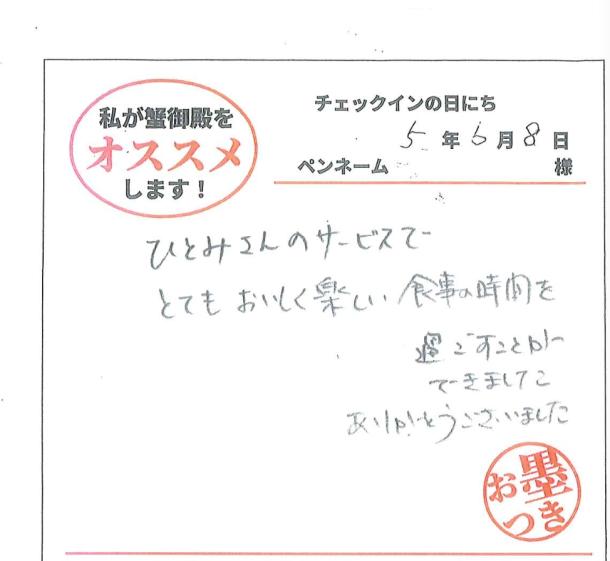 私が蟹御殿を
オススメ
します！
チェックインの日にち
5年6月8日
ペンネーム 様
ひとみさんのサービスで
とてもおいしく楽しい食事の時間を
過ごすことが
できました
ありがとうございました
お墨
つき